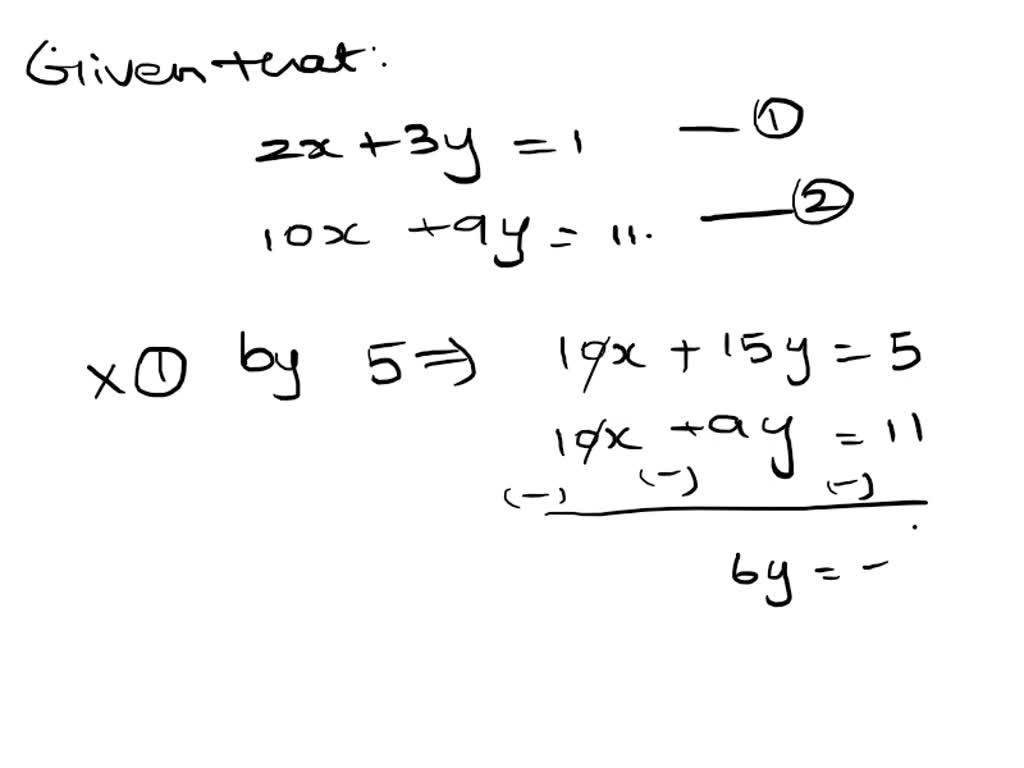 Given that:
2x + 3y = 1 — ①
10x + 9y = 11. — ②
x ① by 5 ⇒ 10x + 15y = 5
10x + 9y = 11
(-) (-) (-)
6y = -